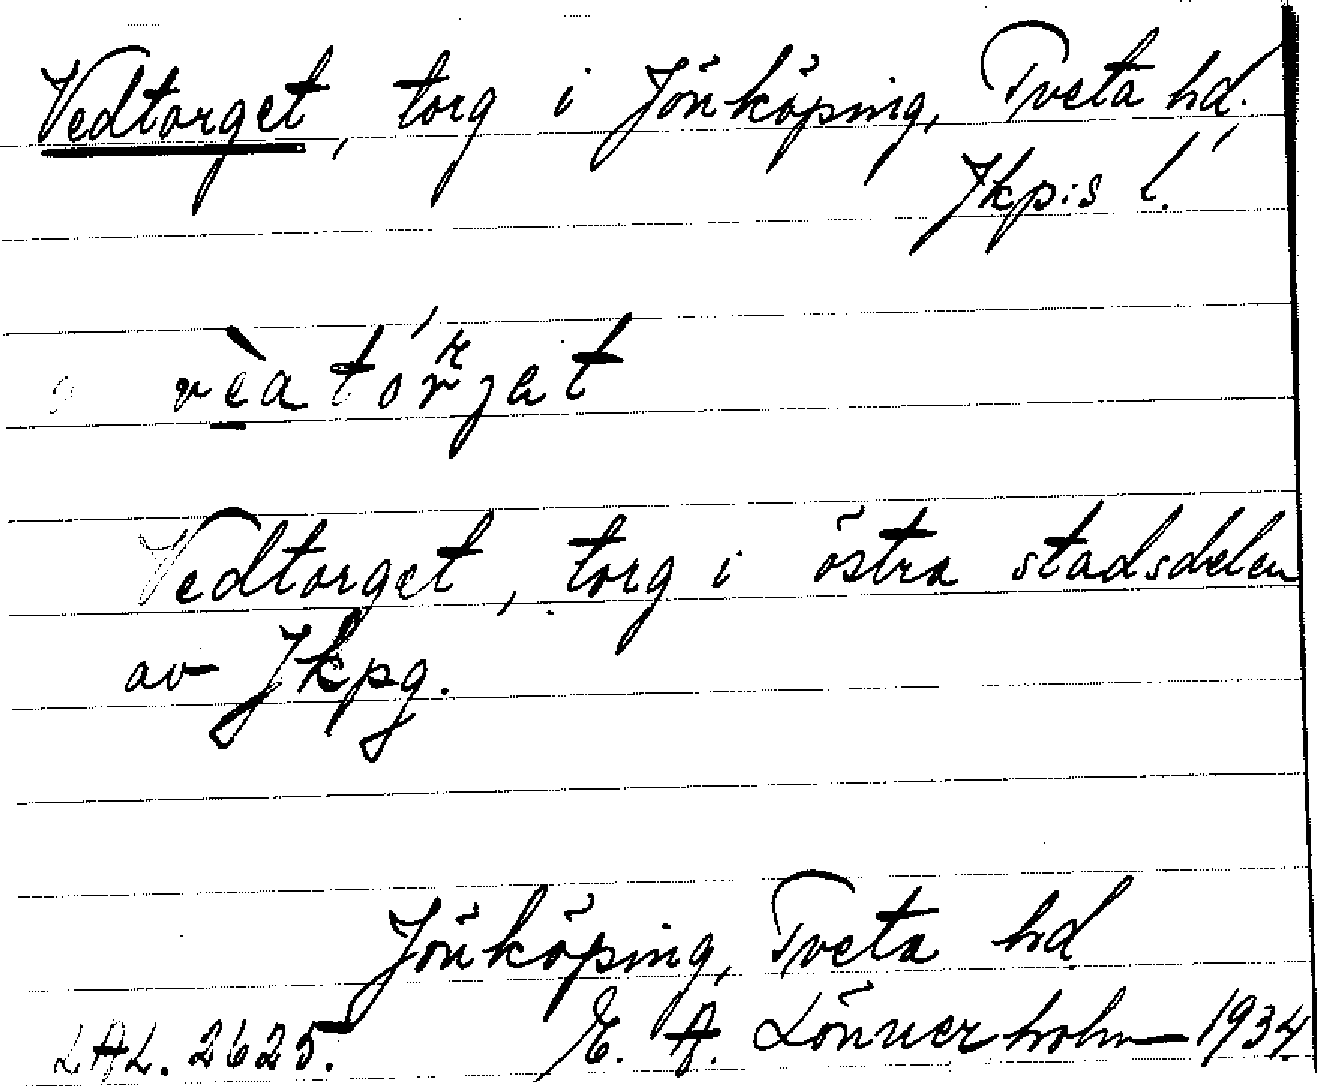 Vedtorget, torg i Jönköping, Tveta hd,
Jkp:s l.
Vedtorget, torg i östra stadsdelen
av Jkpg.
Jönköping, Tveta hd
LAL. 2625. E. A. Lönnerholm 1934